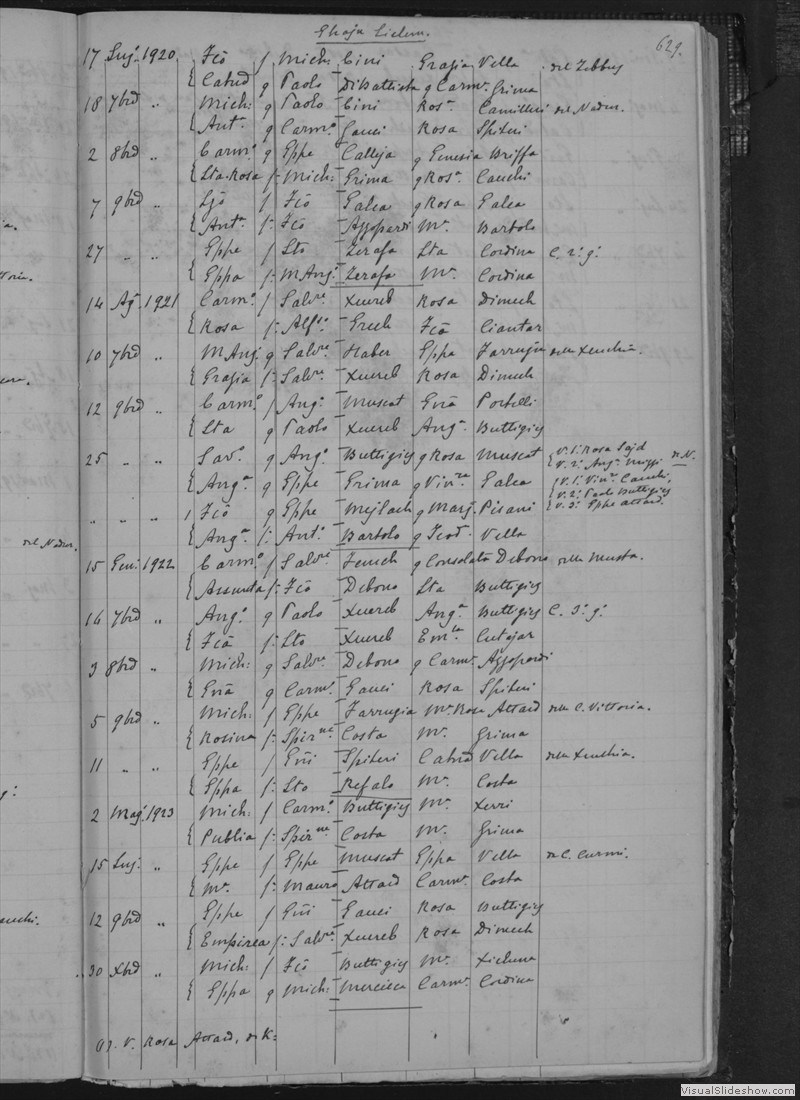 Ghajn Sielem.
629.
17 Lug. 1920 Fcõ f Mich: Cini Grazia Vella del Zebbug
{ Catnd g Paolo DiBattista g Carmª. Grima
18 7brd „ Mich: g Paolo Cini Rosª. Camilleri del Nadur.
{ Antª g Carmº. Gauci Rosa Spiteri
2 8brd „ Carmº. g Gppe Calleja g Genesia Briffa
{ Sta. Rosa f: Mich: Grima g Rosª. Cauchi
7 9brd „ f Fcõ Galea g Rosa Galea
{ Antª f: Fcõ Azzopardi Mª. Bartolo
27 „ „ Gppe f Sto Zerafa Sta Cordina C. 2º. gº.
{ Gppa f: MAngº. Zerafa Mª. Cordina
14 Agº. 1921 Carmº. f Salvre. Xuereb Rosa Dimech
{ Rosa f: Alfº. Grech Fcã Ciantar
10 7brd „ MAng. g Salvre. Haber Gppa Farrugia della Xeuchia.
{ Grazia f: Salvre. Xuereb Rosa Dimech
12 9brd „ Carmº. f Angº. Muscat Gnã Portelli
{ Sta g Paolo Xuereb Angª. Buttigieg
25 „ „ Savº. g Angº. Buttigieg g Rosa Muscat { V. 1º. Rosa Sajd V. 2º. Angª. n.N.
{ Angª g Gppe Grima g Vinza Galea { V. 1º. Vinza Cauchi,
„ „ „ Fcõ g Gppe Mejlach g Marj. Pisani { V. 2º. Paolo Buttigieg V. 3º. Gppe Attard.
{ Angª. f: Antº. Bartolo g Teod. Vella
15 Gen: 1922 Carmº. f Salvre. Fenech g Consolata Debono della Musta.
{ Assunta f: Fcõ Debono Sta Buttigieg
16 7brd „ Angº. g Paolo Xuereb Angª. Buttigieg C. 3º. gº.
{ Fcã f: Sto Xuereb Emla Cutajar
3 8brd „ Mich: g Salvre. Debono g Carmª. Azzopardi
{ Gnã g Carmº. Gauci Rosa Spiteri
5 9brd „ Mich: f Gppe Farrugia Mª. Rosa Attard della C. Vittoria.
{ Rosina f: Spirne. Costa Mª. Grima
11 „ „ Gppe f Gñi Spiteri Catnã Vella della Xeuchia.
{ Gppa f: Sto Refalo Mª. Costa
2 Magº. 1923 Mich: f Carmº. Buttigieg Mª. Xerri
{ Publia f: Spirne Costa Mª. Grima
15 Lug. „ Gppe f Gppe Muscat Gppa Vella da C. Curmi.
{ Mª. f: Mauro Attard Carmª. Costa
12 9brd „ Gppe f Gñi Gauci Rosa Buttigieg
{ Empirea f: Salvre Xuereb Rosa Dimech
30 Xbrd „ Mich: f Fcõ Buttigieg Mª. Xicluna
{ Gppa g Mich: Mercieca Carmª. Cordina
V. Rosa Attard, K:
VisualSlideshow.com